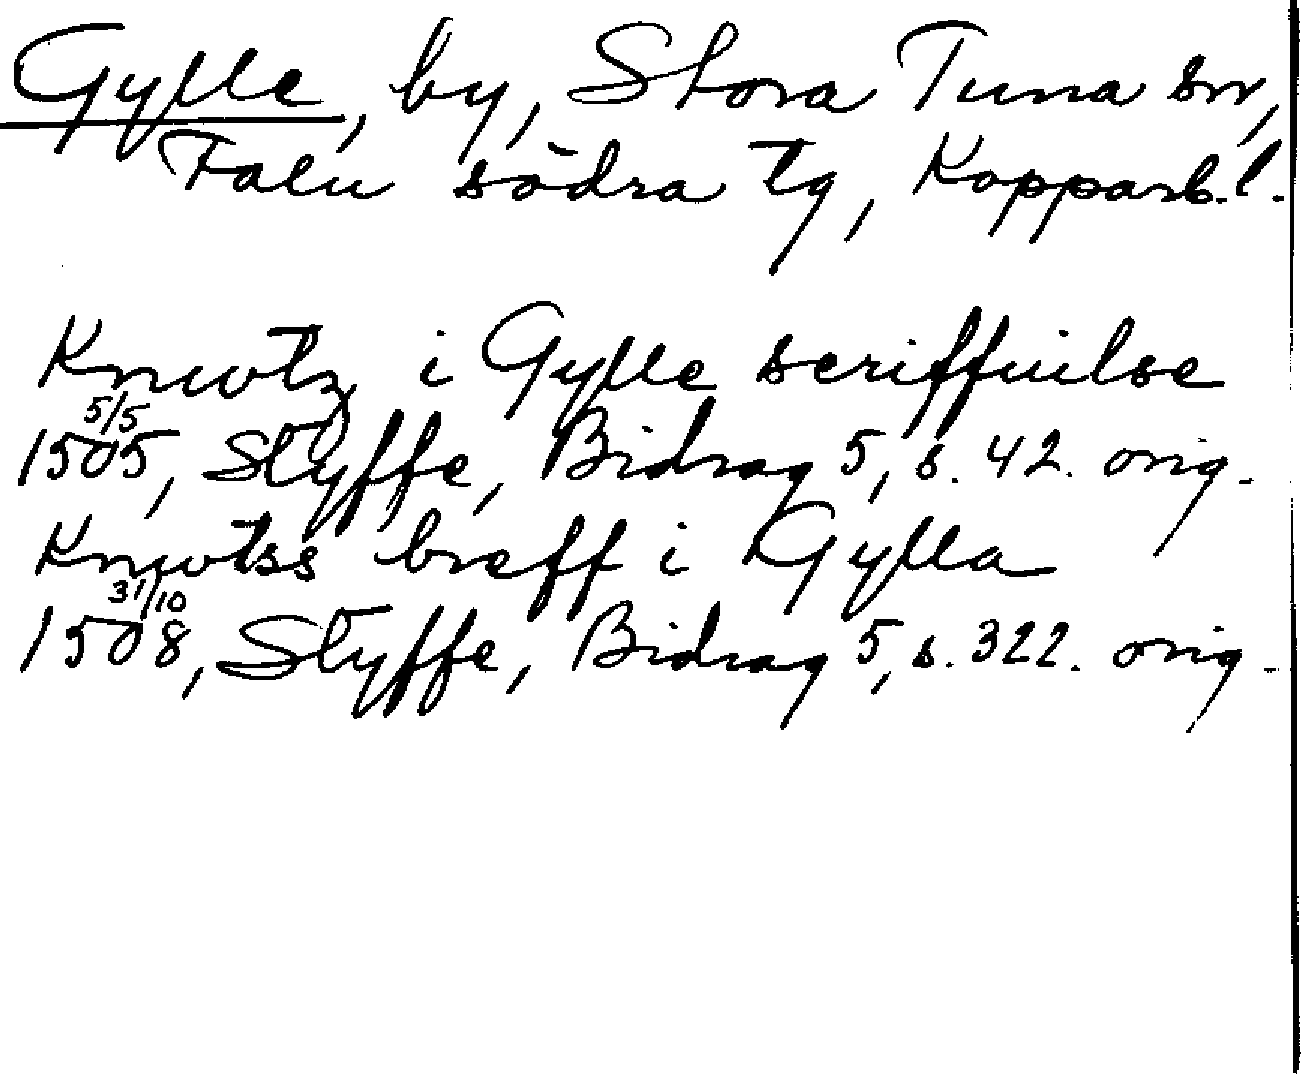 Gylle, by, Stora Tuna sn,
Falu södra tg, Kopparb.l.
Knwtz i Gylle scriffuilse
5/5 1505, Styffe, Bidrag 5, s. 42. orig.
Knwtss breff i Gylla
31/10 1508, Styffe, Bidrag 5, s. 322. orig.